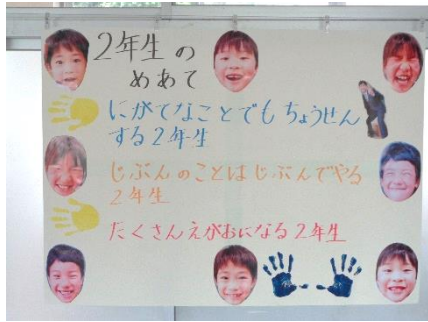 2年生の
めあて
にがてなことでもちょうせん
する2年生
じぶんのことはじぶんでやる
2年生
たくさんえがおになる2年生